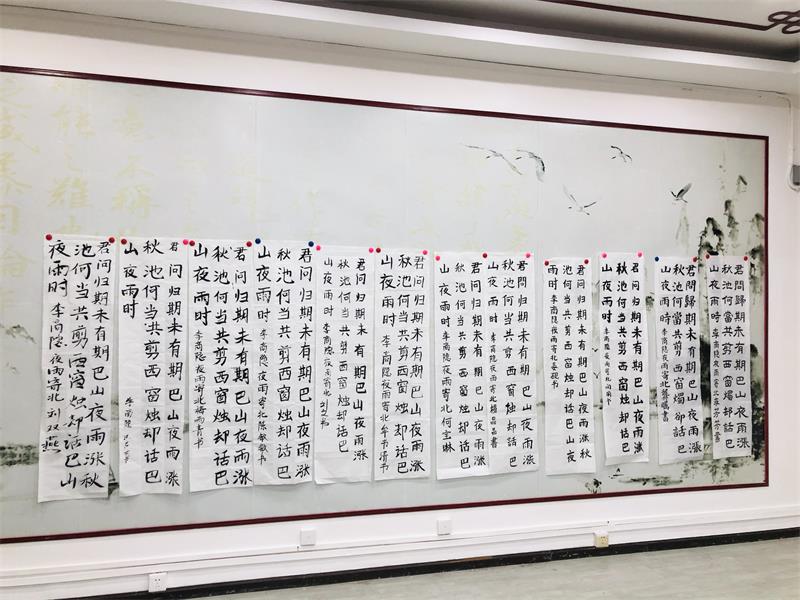 君問歸期未有期巴山夜雨漲
秋池何當共剪西窗燭卻話巴
山夜雨時 李商隐夜雨寄北 芬芬書
君問歸期未有期巴山夜雨漲
秋池何當共剪西窗燭卻話巴
山夜雨時 李商隐夜雨寄北 書
君问归期未有期巴山夜雨涨
秋池何当共剪西窗烛却话巴
山夜雨时 李商隐夜雨寄北 书
君问归期未有期巴山夜雨涨秋
池何当共剪西窗烛却话巴山夜
雨时 李商隐夜雨寄北 书
君问归期未有期巴山夜雨涨
秋池何当共剪西窗烛却话巴
山夜雨时 李商隐夜雨寄北 晶晶书
君问归期未有期巴山夜雨涨
秋池何当共剪西窗烛却话巴
山夜雨时 李商隐夜雨寄北 何宝琳
君问归期未有期巴山夜雨涨
秋池何当共剪西窗烛却话巴
山夜雨时 李商隐夜雨寄北 牟书清书
君问归期未有期巴山夜雨涨
秋池何当共剪西窗烛却话巴
山夜雨时 李商隐夜雨寄北 书
君问归期未有期巴山夜雨涨
秋池何当共剪西窗烛却话巴
山夜雨时 李商隐夜雨寄北 陈敏敏书
君问归期未有期巴山夜雨涨
秋池何当共剪西窗烛却话巴
山夜雨时 李商隐夜雨寄北 梅雨青书
君问归期未有期巴山夜雨涨
秋池何当共剪西窗烛却话巴
山夜雨时 李商隐
君问归期未有期巴山夜雨涨秋
池何当共剪西窗烛却话巴山
夜雨时 李商隐 夜雨寄北 刘双燕